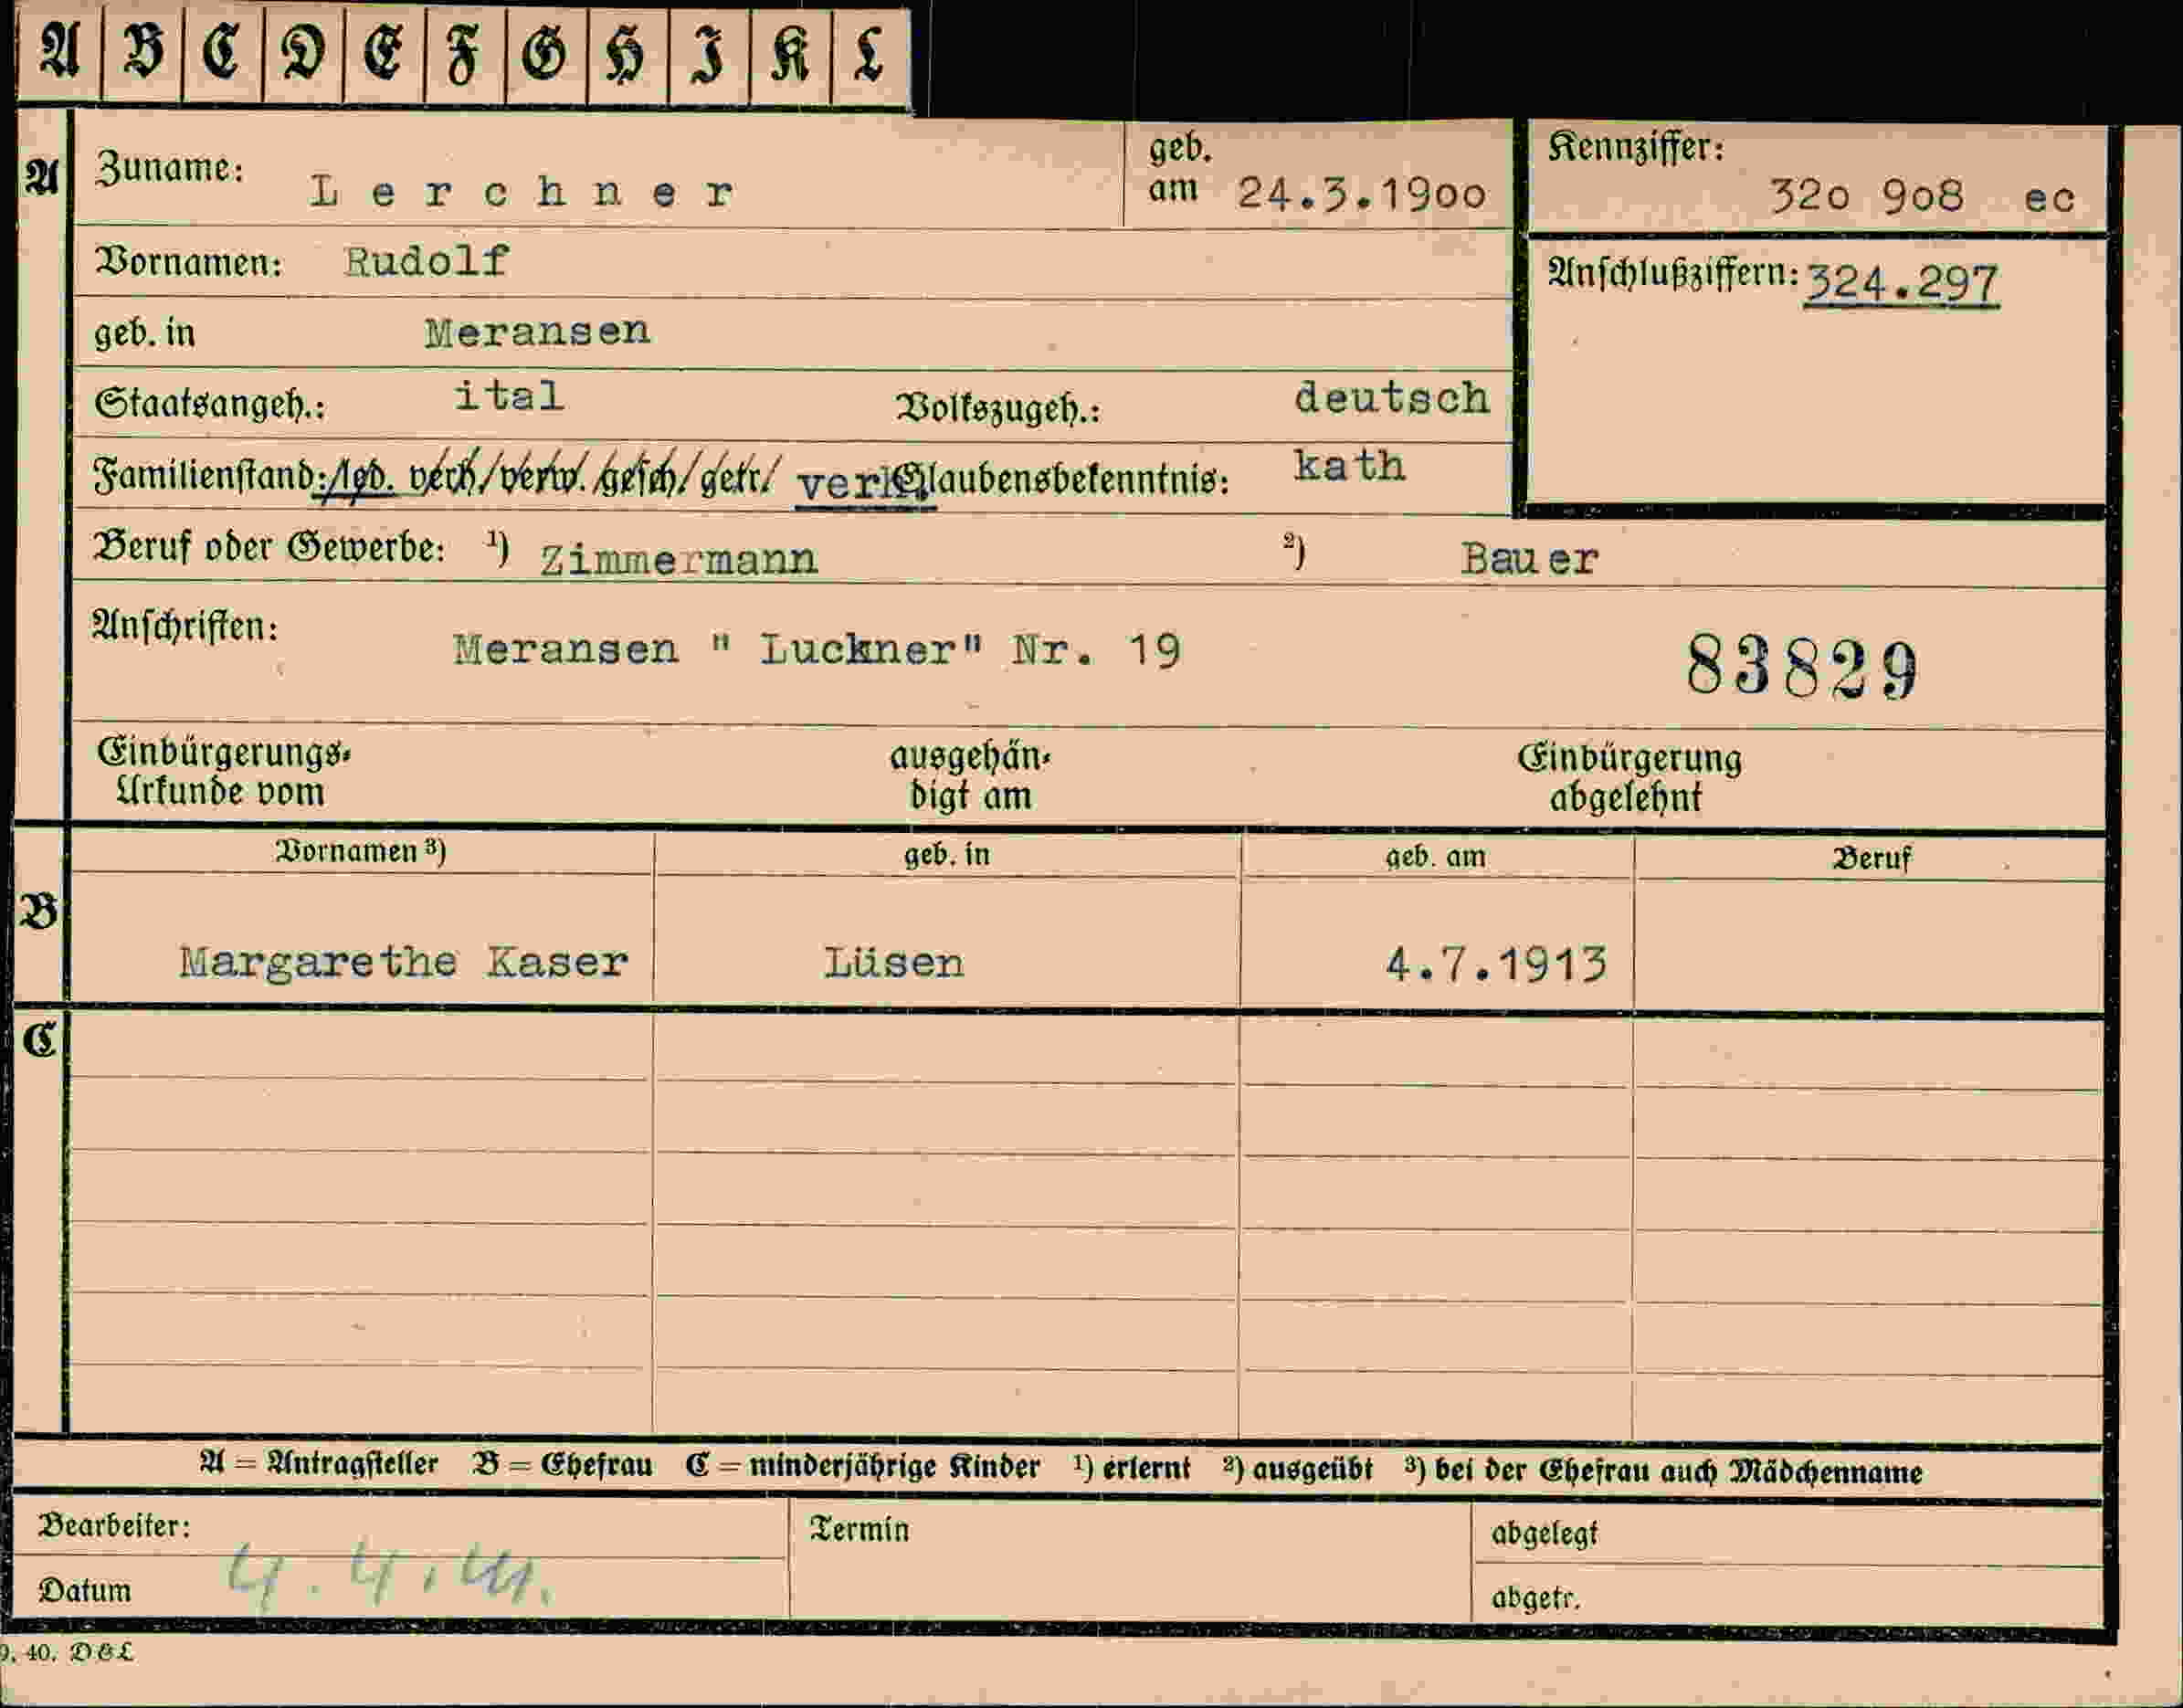 A B C D E F G H I K L
A Zuname: Lerchner geb. am 24.3.1900 Kennziffer: 320 908 ec
Vornamen: Rudolf Anschlußziffern: 324.297
geb. in Meransen
Staatsangeh.: ital Volkszugeh.: deutsch
Familienstand: led. verh/verw./gesch/getr/ Glaubensbekenntnis: kath
Beruf oder Gewerbe: ¹) Zimmermann ²) Bauer
Anschriften: Meransen " Luckner" Nr. 19 83829
Einbürgerungs- ausgehän- Einbürgerung
Urkunde vom digt am abgelehnt
Vornamen ³) geb. in geb. am Beruf
B
Margarethe Kaser Lüsen 4.7.1913
C
A = Antragsteller B = Ehefrau C = minderjährige Kinder ¹) erlernt ²) ausgeübt ³) bei der Ehefrau auch Mädchenname
Bearbeiter: Termin abgelegt
Datum 4.4.41. abgetr.
9. 40. DEL